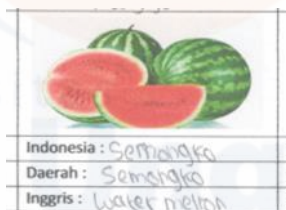 Indonesia : Semangka
Daerah : Semangka
Inggris : Water melon